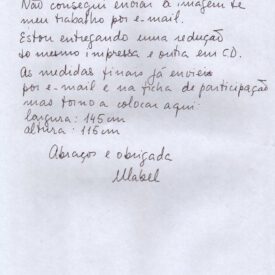 Não consegui enviar a imagem de
meu trabalho por e-mail.
Estou entregando uma redução
do mesmo impressa e outra em CD.
As medidas finais já enviei
por e-mail e na ficha de participação
mas torno a colocar aqui:
largura: 145cm
altura: 115cm
Abraços e obrigada
Mabel